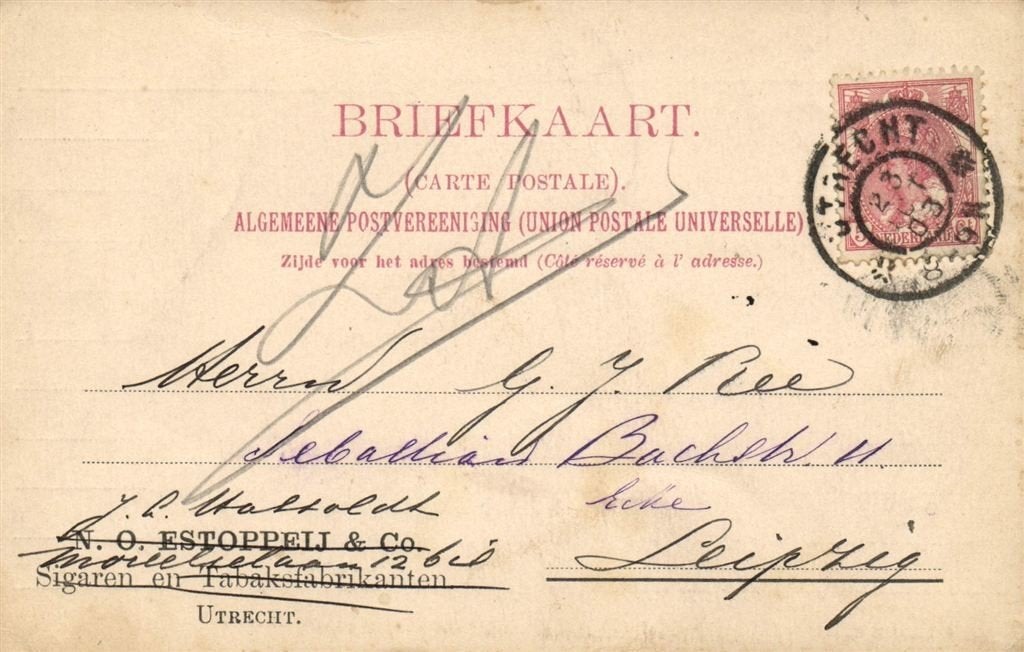 BRIEFKAART.
(CARTE POSTALE).
ALGEMEENE POSTVEREENIGING (UNION POSTALE UNIVERSELLE)
Zijde voor het adres bestemd (Côté réservé à l' adresse.)
UTRECHT
23
03
8-9N
NEDERLAND
Herrn G. J. Rée
Sebastian Bachstr. 11
Ecke
Leipzig
N. O. ESTOPPEIJ & Co.
12 bis
Sigaren en Tabaksfabrikanten
UTRECHT.